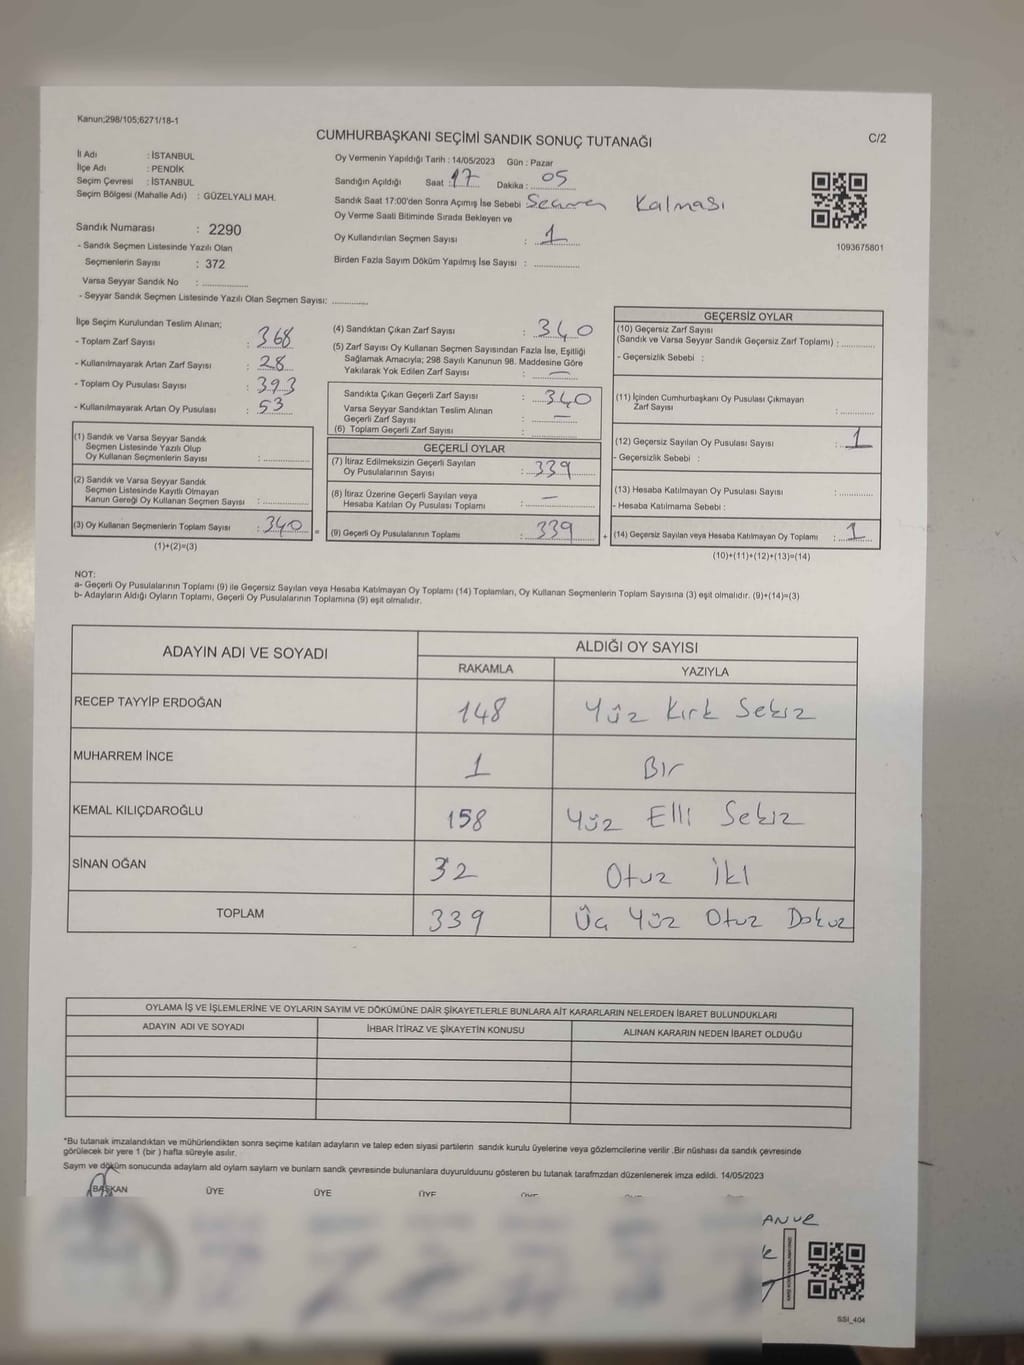 Kanun;298/105;6271/18-1
CUMHURBAŞKANI SEÇİMİ SANDIK SONUÇ TUTANAĞI
C/2
İl Adı : İSTANBUL
İlçe Adı : PENDİK
Seçim Çevresi : İSTANBUL
Seçim Bölgesi (Mahalle Adı) : GÜZELYALI MAH.
Sandık Numarası : 2290
- Sandık Seçmen Listesinde Yazılı Olan
Seçmenlerin Sayısı : 372
Varsa Seyyar Sandık No : ..............
- Seyyar Sandık Seçmen Listesinde Yazılı Olan Seçmen Sayısı: ............
Oy Vermenin Yapıldığı Tarih : 14/05/2023 Gün : Pazar
Sandığın Açıldığı Saat : 17 Dakika : 05
Sandık Saat 17:00'den Sonra Açımış İse Sebebi Seçmen Kalması
Oy Verme Saati Bitiminde Sırada Bekleyen ve
Oy Kullandırılan Seçmen Sayısı : 1
Birden Fazla Sayım Döküm Yapılmış İse Sayısı : ..............
1093675801
İlçe Seçim Kurulundan Teslim Alınan;
- Toplam Zarf Sayısı : 368
- Kullanılmayarak Artan Zarf Sayısı : 28
- Toplam Oy Pusulası Sayısı : 393
- Kullanılmayarak Artan Oy Pusulası : 53
(1) Sandık ve Varsa Seyyar Sandık
Seçmen Listesinde Yazılı Olup
Oy Kullanan Seçmenlerin Sayısı : ..............
(2) Sandık ve Varsa Seyyar Sandık
Seçmen Listesinde Kayıtlı Olmayan
Kanun Gereği Oy Kullanan Seçmen Sayısı : ..............
(3) Oy Kullanan Seçmenlerin Toplam Sayısı : 340 =
(1)+(2)=(3)
(4) Sandıktan Çıkan Zarf Sayısı : 340
(5) Zarf Sayısı Oy Kullanan Seçmen Sayısından Fazla İse, Eşitliği
Sağlamak Amacıyla; 298 Sayılı Kanunun 98. Maddesine Göre
Yakılarak Yok Edilen Zarf Sayısı : —
Sandıkta Çıkan Geçerli Zarf Sayısı : 340
Varsa Seyyar Sandıktan Teslim Alınan
Geçerli Zarf Sayısı : —
(6) Toplam Geçerli Zarf Sayısı : ..............
GEÇERLİ OYLAR
(7) İtiraz Edilmeksizin Geçerli Sayılan
Oy Pusulalarının Sayısı : 339
(8) İtiraz Üzerine Geçerli Sayılan veya
Hesaba Katılan Oy Pusulası Toplamı : —
(9) Geçerli Oy Pusulalarının Toplamı : 339 +
GEÇERSİZ OYLAR
(10) Geçersiz Zarf Sayısı
(Sandık ve Varsa Seyyar Sandık Geçersiz Zarf Toplamı) : ............
- Geçersizlik Sebebi :
(11) İçinden Cumhurbaşkanı Oy Pusulası Çıkmayan
Zarf Sayısı : ............
(12) Geçersiz Sayılan Oy Pusulası Sayısı : 1
- Geçersizlik Sebebi :
(13) Hesaba Katılmayan Oy Pusulası Sayısı : ............
- Hesaba Katılmama Sebebi :
(14) Geçersiz Sayılan veya Hesaba Katılmayan Oy Toplamı : 1
(10)+(11)+(12)+(13)=(14)
NOT:
a- Geçerli Oy Pusulalarının Toplamı (9) ile Geçersiz Sayılan veya Hesaba Katılmayan Oy Toplamı (14) Toplamları, Oy Kullanan Seçmenlerin Toplam Sayısına (3) eşit olmalıdır. (9)+(14)=(3)
b- Adayların Aldığı Oyların Toplamı, Geçerli Oy Pusulalarının Toplamına (9) eşit olmalıdır.
ADAYIN ADI VE SOYADI ALDIĞI OY SAYISI
RAKAMLA YAZIYLA
RECEP TAYYİP ERDOĞAN 148 Yüz Kırk Sekiz
MUHARREM İNCE 1 Bir
KEMAL KILIÇDAROĞLU 158 Yüz Elli Sekiz
SİNAN OĞAN 32 Otuz İki
TOPLAM 339 Üç Yüz Otuz Dokuz
OYLAMA İŞ VE İŞLEMLERİNE VE OYLARIN SAYIM VE DÖKÜMÜNE DAİR ŞİKAYETLERLE BUNLARA AİT KARARLARIN NELERDEN İBARET BULUNDUKLARI
ADAYIN ADI VE SOYADI İHBAR İTİRAZ VE ŞİKAYETİN KONUSU ALINAN KARARIN NEDEN İBARET OLDUĞU
*Bu tutanak imzalandıktan ve mühürlendikten sonra seçime katılan adayların ve talep eden siyasi partilerin sandık kurulu üyelerine veya gözlemcilerine verilir .Bir nüshası da sandık çevresinde
görülecek bir yere 1 (bir ) hafta süreyle asılır.
Sayım ve döküm sonucunda adaylam ald oylam saylam ve bunlam sandk çevresinde bulunanlara duyurulduunu gösteren bu tutanak tarafmzdan düzenlenerek imza edildi. 14/05/2023
BAŞKAN ÜYE ÜYE ÜYE
ANUR
SSI_404